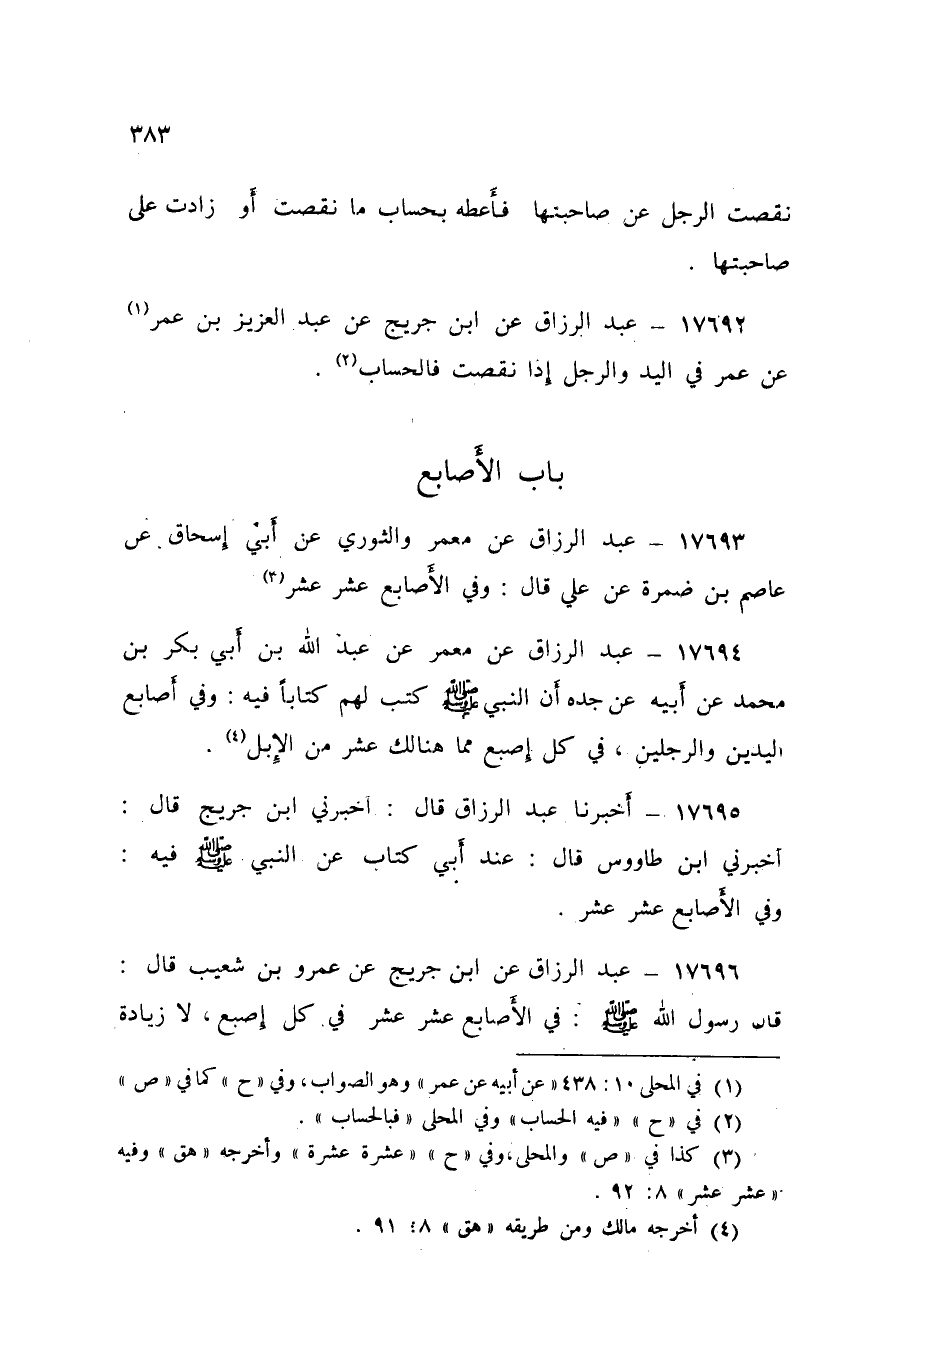 ٣٨٣
نقصت الرجل عن صاحبتها فأعطه بحساب ما نقصت أو زادت على
صاحبتها .
١٧٦٩٢ – عبد الرزاق عن ابن جريج عن عبد العزيز بن عمر(١)
عن عمر في اليد والرجل إذا نقصت فالحساب(٢) .
باب الأصابع
١٧٦٩٣ – عبد الرزاق عن معمر والثوري عن أبي إسحاق عن
عاصم بن ضمرة عن علي قال : وفي الأصابع عشر عشر(٣)
١٧٦٩٤ – عبد الرزاق عن معمر عن عبد الله بن أبي بكر بن
محمد عن أبيه عن جده أن النبي ﷺ كتب لهم كتاباً فيه : وفي أصابع
اليدين والرجلين ، في كل إصبع مما هنالك عشر من الإبل(٤) .
١٧٦٩٥ – أخبرنا عبد الرزاق قال : أخبرني ابن جريج قال :
أخبرني ابن طاووس قال : عند أبي كتاب عن النبي ﷺ فيه :
وفي الأصابع عشر عشر .
١٧٦٩٦ – عبد الرزاق عن ابن جريج عن عمرو بن شعيب قال :
قال رسول الله ﷺ : في الأصابع عشر عشر في كل إصبع ، لا زيادة
(١) في المحلى ١٠ : ٤٣٨ « عن أبيه عن عمر » وهو الصواب، وفي « ح » كما في « ص »
(٢) في « ح » « فيه الحساب » وفي المحلى « فبالحساب » .
(٣) كذا في « ص » والمحلى، وفي « ح » « عشرة عشرة » وأخرجه « هق » وفيه
« عشر عشر » ٨: ٩٢ .
(٤) أخرجه مالك ومن طريقه « هق » ٨: ٩١ .